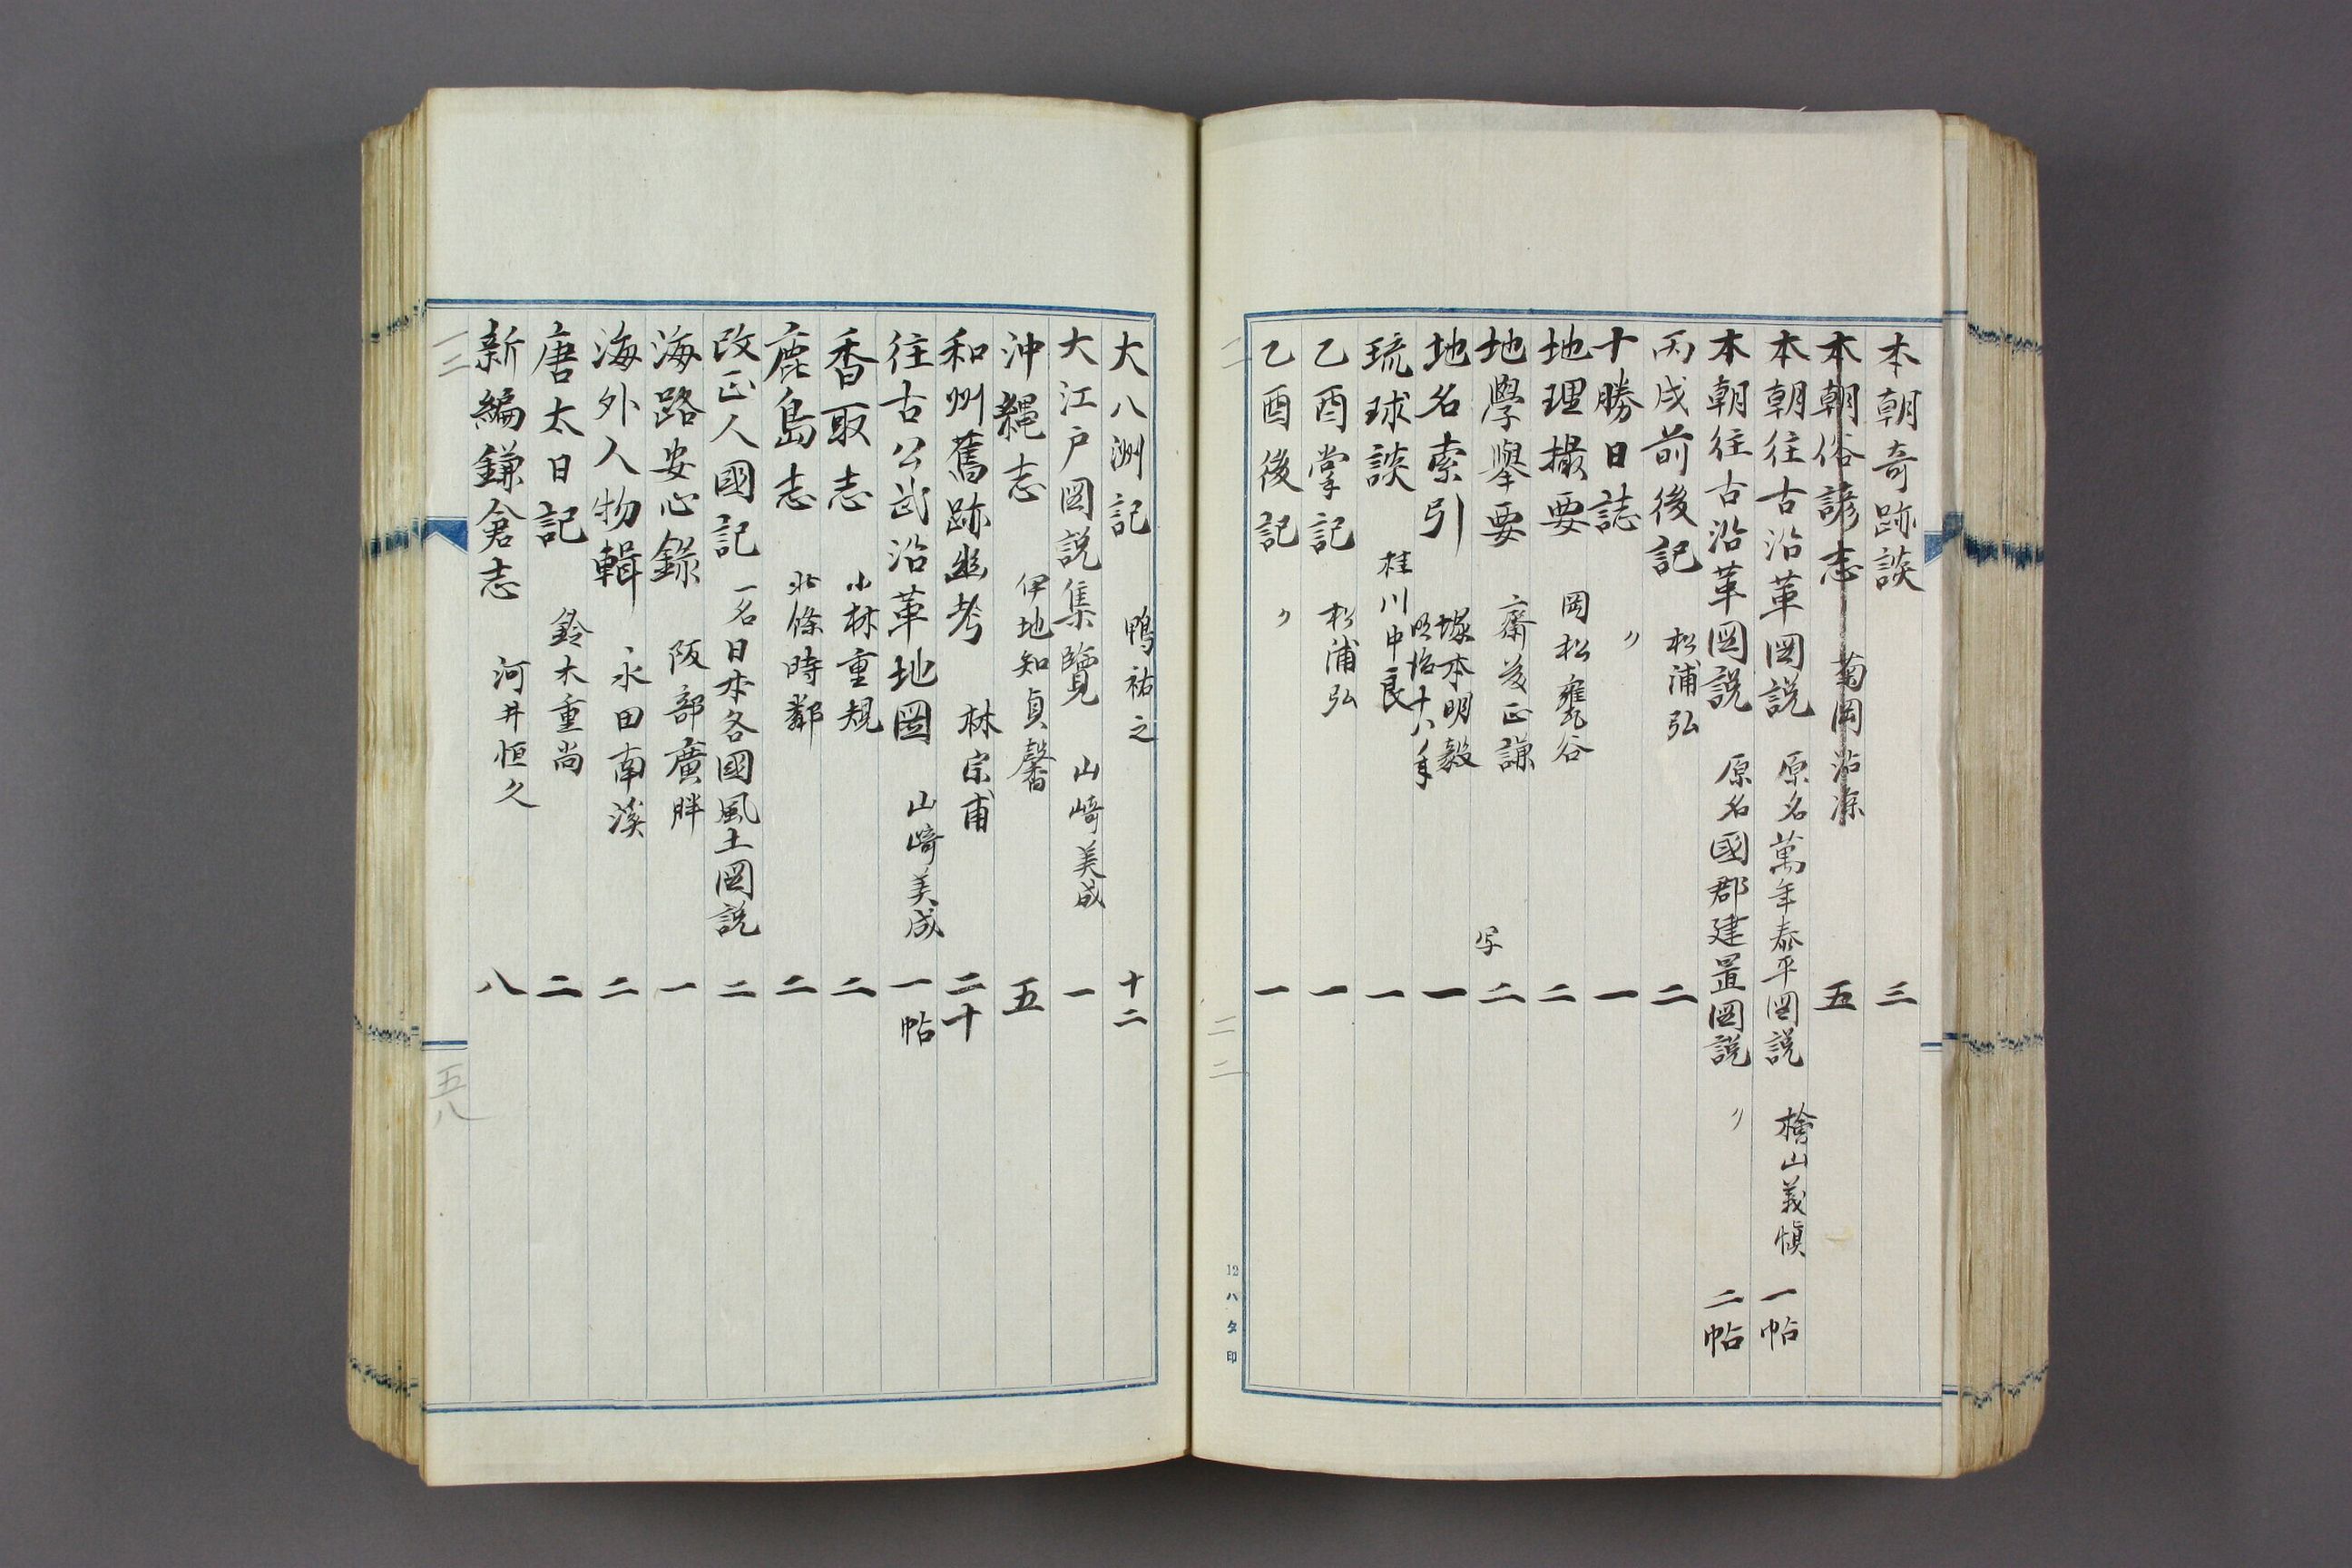 本朝奇跡談 三
本朝俗諺志 菊岡沾凉 五
本朝往古沿革図説 原名萬年泰平図説 檜山義愼 一帖
本朝往古沿革図説 原名國郡建置図説 〃 二帖
丙戌前後記 松浦弘 二
十勝日誌 〃 一
地理撮要 岡松甕谷 二
地學擧要 齋藤正謙 写 二
地名索引 塚本明毅 明治十八年 一
琉球談 桂川中良 一
乙酉掌記 松浦弘 一
乙酉後記 〃 一
12ハタ印
大八洲記 鴨祐之 十二
大江戸図説集覽 山崎美成 一
沖縄志 伊地知貞馨 五
和州舊跡幽考 林宗甫 二十
往古公武沿革地図 山崎美成 一帖
香取志 小林重規 二
鹿島志 北條時鄰 二
改正人國記 一名日本各國風土図説 二
海路安心錄 阪部廣胖 一
海外人物輯 永田南溪 二
唐太日記 鈴木重尚 二
新編鎌倉志 河井恒久 八
五八